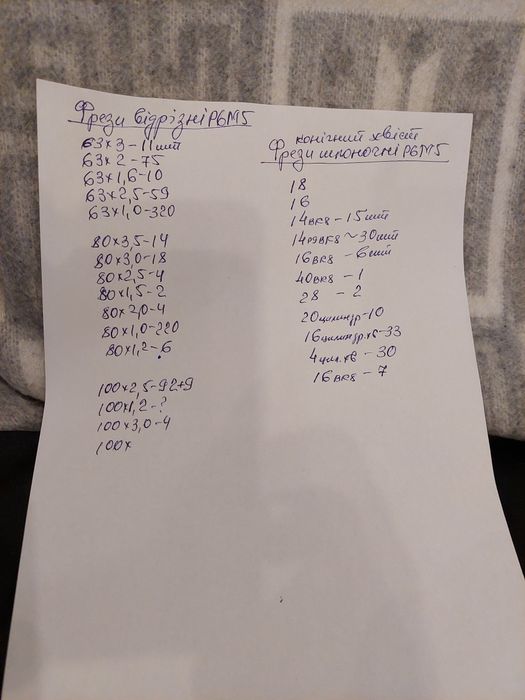 Фрези відрізні Р6М5
63×3-11шт
63×2-75
63×1,6-10
63×2,5-59
63×1,0-320
80×3,5-14
80×3,0-18
80×2,5-4
80×1,5-2
80×2,0-4
80×1,0-220
80×1,2-6
100×2,5-92+9
100×1,2-?
100×3,0-4
100×
конічний хвіст
Фрези шпоночні Р6М5
18
16
14ВК8-15шт
14Р9ВК8~30шт
16ВК8-6шт
40ВК8-1
28-2
20цилиндр-10
16цилиндр.хв-33
4цил.хв-30
16ВК8-7